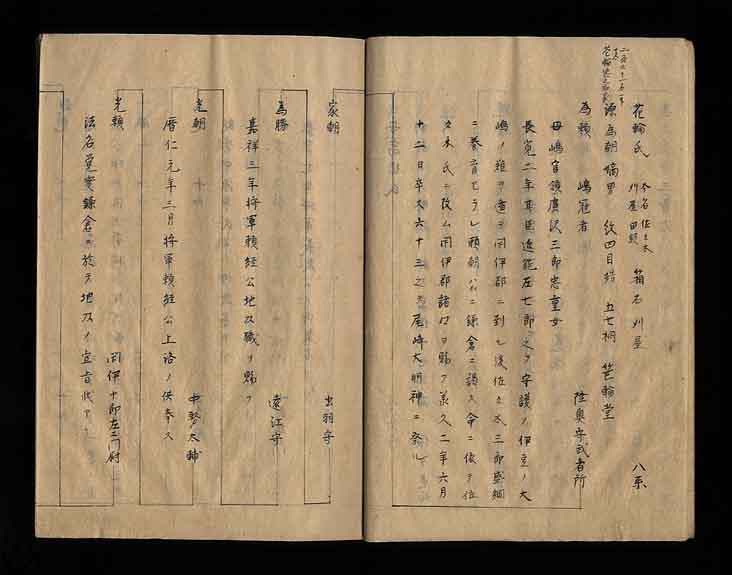 花輪氏 本名佐々木
刈屋 田鎖
箱石 刈屋 八系
源為朝嫡男 紋四目結 五七桐 花輪堂
為頼 嶋冠者 陸奥守武者所
母嶋官領廣沢三郎忠重女
長寛二年 左七郎之ヲ守護ノ伊豆ノ大
嶋ノ難ヲ遁テ閇伊郡ニ到ル後佐々木三郎盛綱
ニ養育セラレ頼朝公ニ鎌倉ニ謁ス命ニ依テ佐
々木氏ニ改ム閇伊郡諸口ヲ賜フ承久二年六月
十二日卒ス六十三之ヲ尾崎大明神ニ祭ル
家朝 出羽守
為勝 遠江守
嘉祥三年将軍頼経公地及職ヲ賜フ
光朝 中務太輔
暦仁元年三月将軍頼経公上洛ノ供奉ス
光頼 閇伊十郎左エ門尉
法名 鎌倉ニ於テ地及ノ宣旨